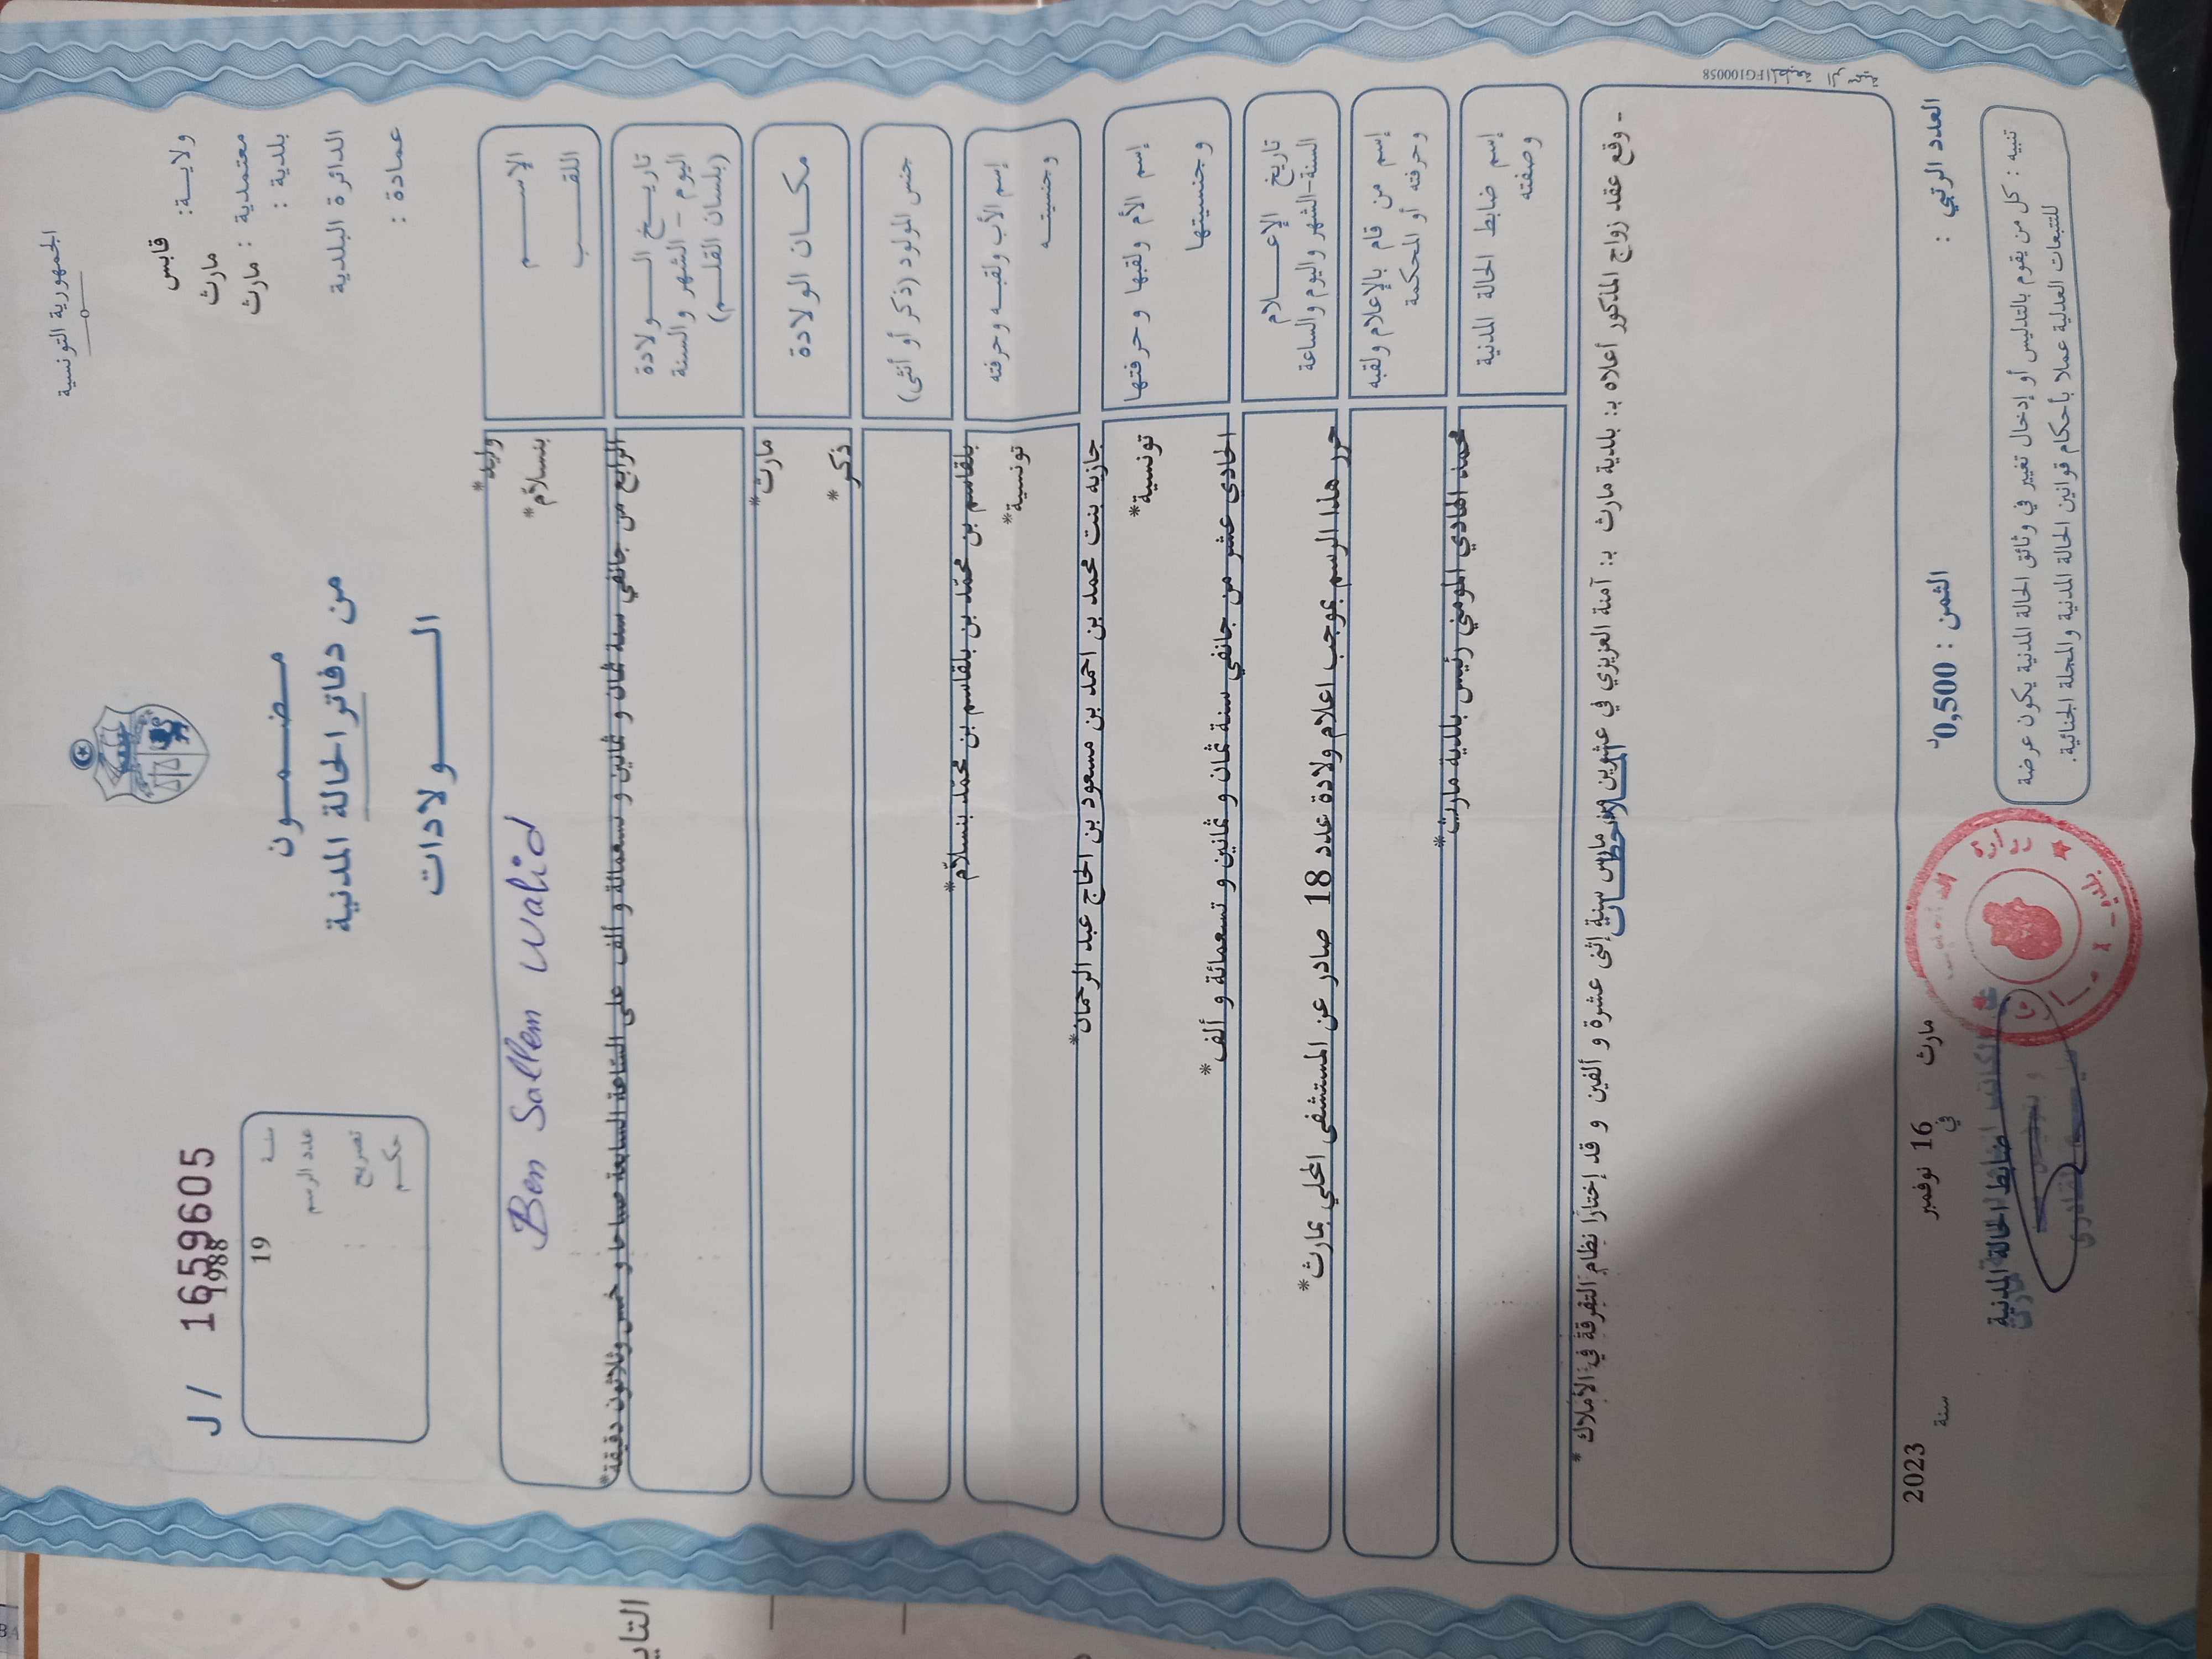 الجمهورية التونسية
ولاية: قابس
معتمدية : مارث
بلدية : مارث
الدائرة البلدية
عمادة :
مضمون
من دفاتر الحالة المدنية
الولادات
J / 16596605
سنة 1988
عدد الرسم 19
تصريح :
حكم
الاسم وليد*
اللقب بنسلاّم*
Ben Sallem Walid
تاريخ الولادة
اليوم - الشهر والسنة
(بلسان القلم)
الرابع من جانفي سنة ثمان و ثمانين و تسعمائة و ألف على الساعة السابعة صباحا و خمس وثلاثون دقيقة*
مكان الولادة
مارث*
جنس المولود (ذكر أو أنثى)
ذكر*
إسم الأب ولقبه وحرفته
وجنسيته
بلقاسم بن محمّد بن بلقاسم بن محمّد بنسلاّم*
تونسية*
إسم الأم ولقبها وحرفتها
وجنسيتها
جازيه بنت محمد بن احمد بن مسعود بن الحاج عبد الرحمان*
تونسية*
تاريخ الإعلام
السنة-الشهر واليوم والساعة
الحادي عشر من جانفي سنة ثمان و ثمانين و تسعمائة و ألف*
إسم من قام بالإعلام ولقبه
وحرفته أو المحكمة
حرر هذا الرسم بموجب اعلام ولادة عدد 18 صادر عن المستشفى المحلي بمارث*
إسم ضابط الحالة المدنية
وصفته
محمد الهادي المومني رئيس بلدية مارث*
الملاحظات
- وقع عقد زواج المذكور أعلاه بـ: بلدية مارث بـ: آمنة العزيزي في عشرين من مارس سنة إثنى عشرة و ألفين و قد إختارا نظام التفرقة في الأملاك *
FG100058
العدد الرتبي :
الثمن : 0,500د
مارث في 16 نوفمبر سنة 2023
تنبيه : كل من يقوم بالتدليس أو إدخال تغيير في وثائق الحالة المدنية يكون عرضة
للتتبعات العدلية عملا بأحكام قوانين الحالة المدنية والمجلة الجنائية.
ضابط الحالة المدنية